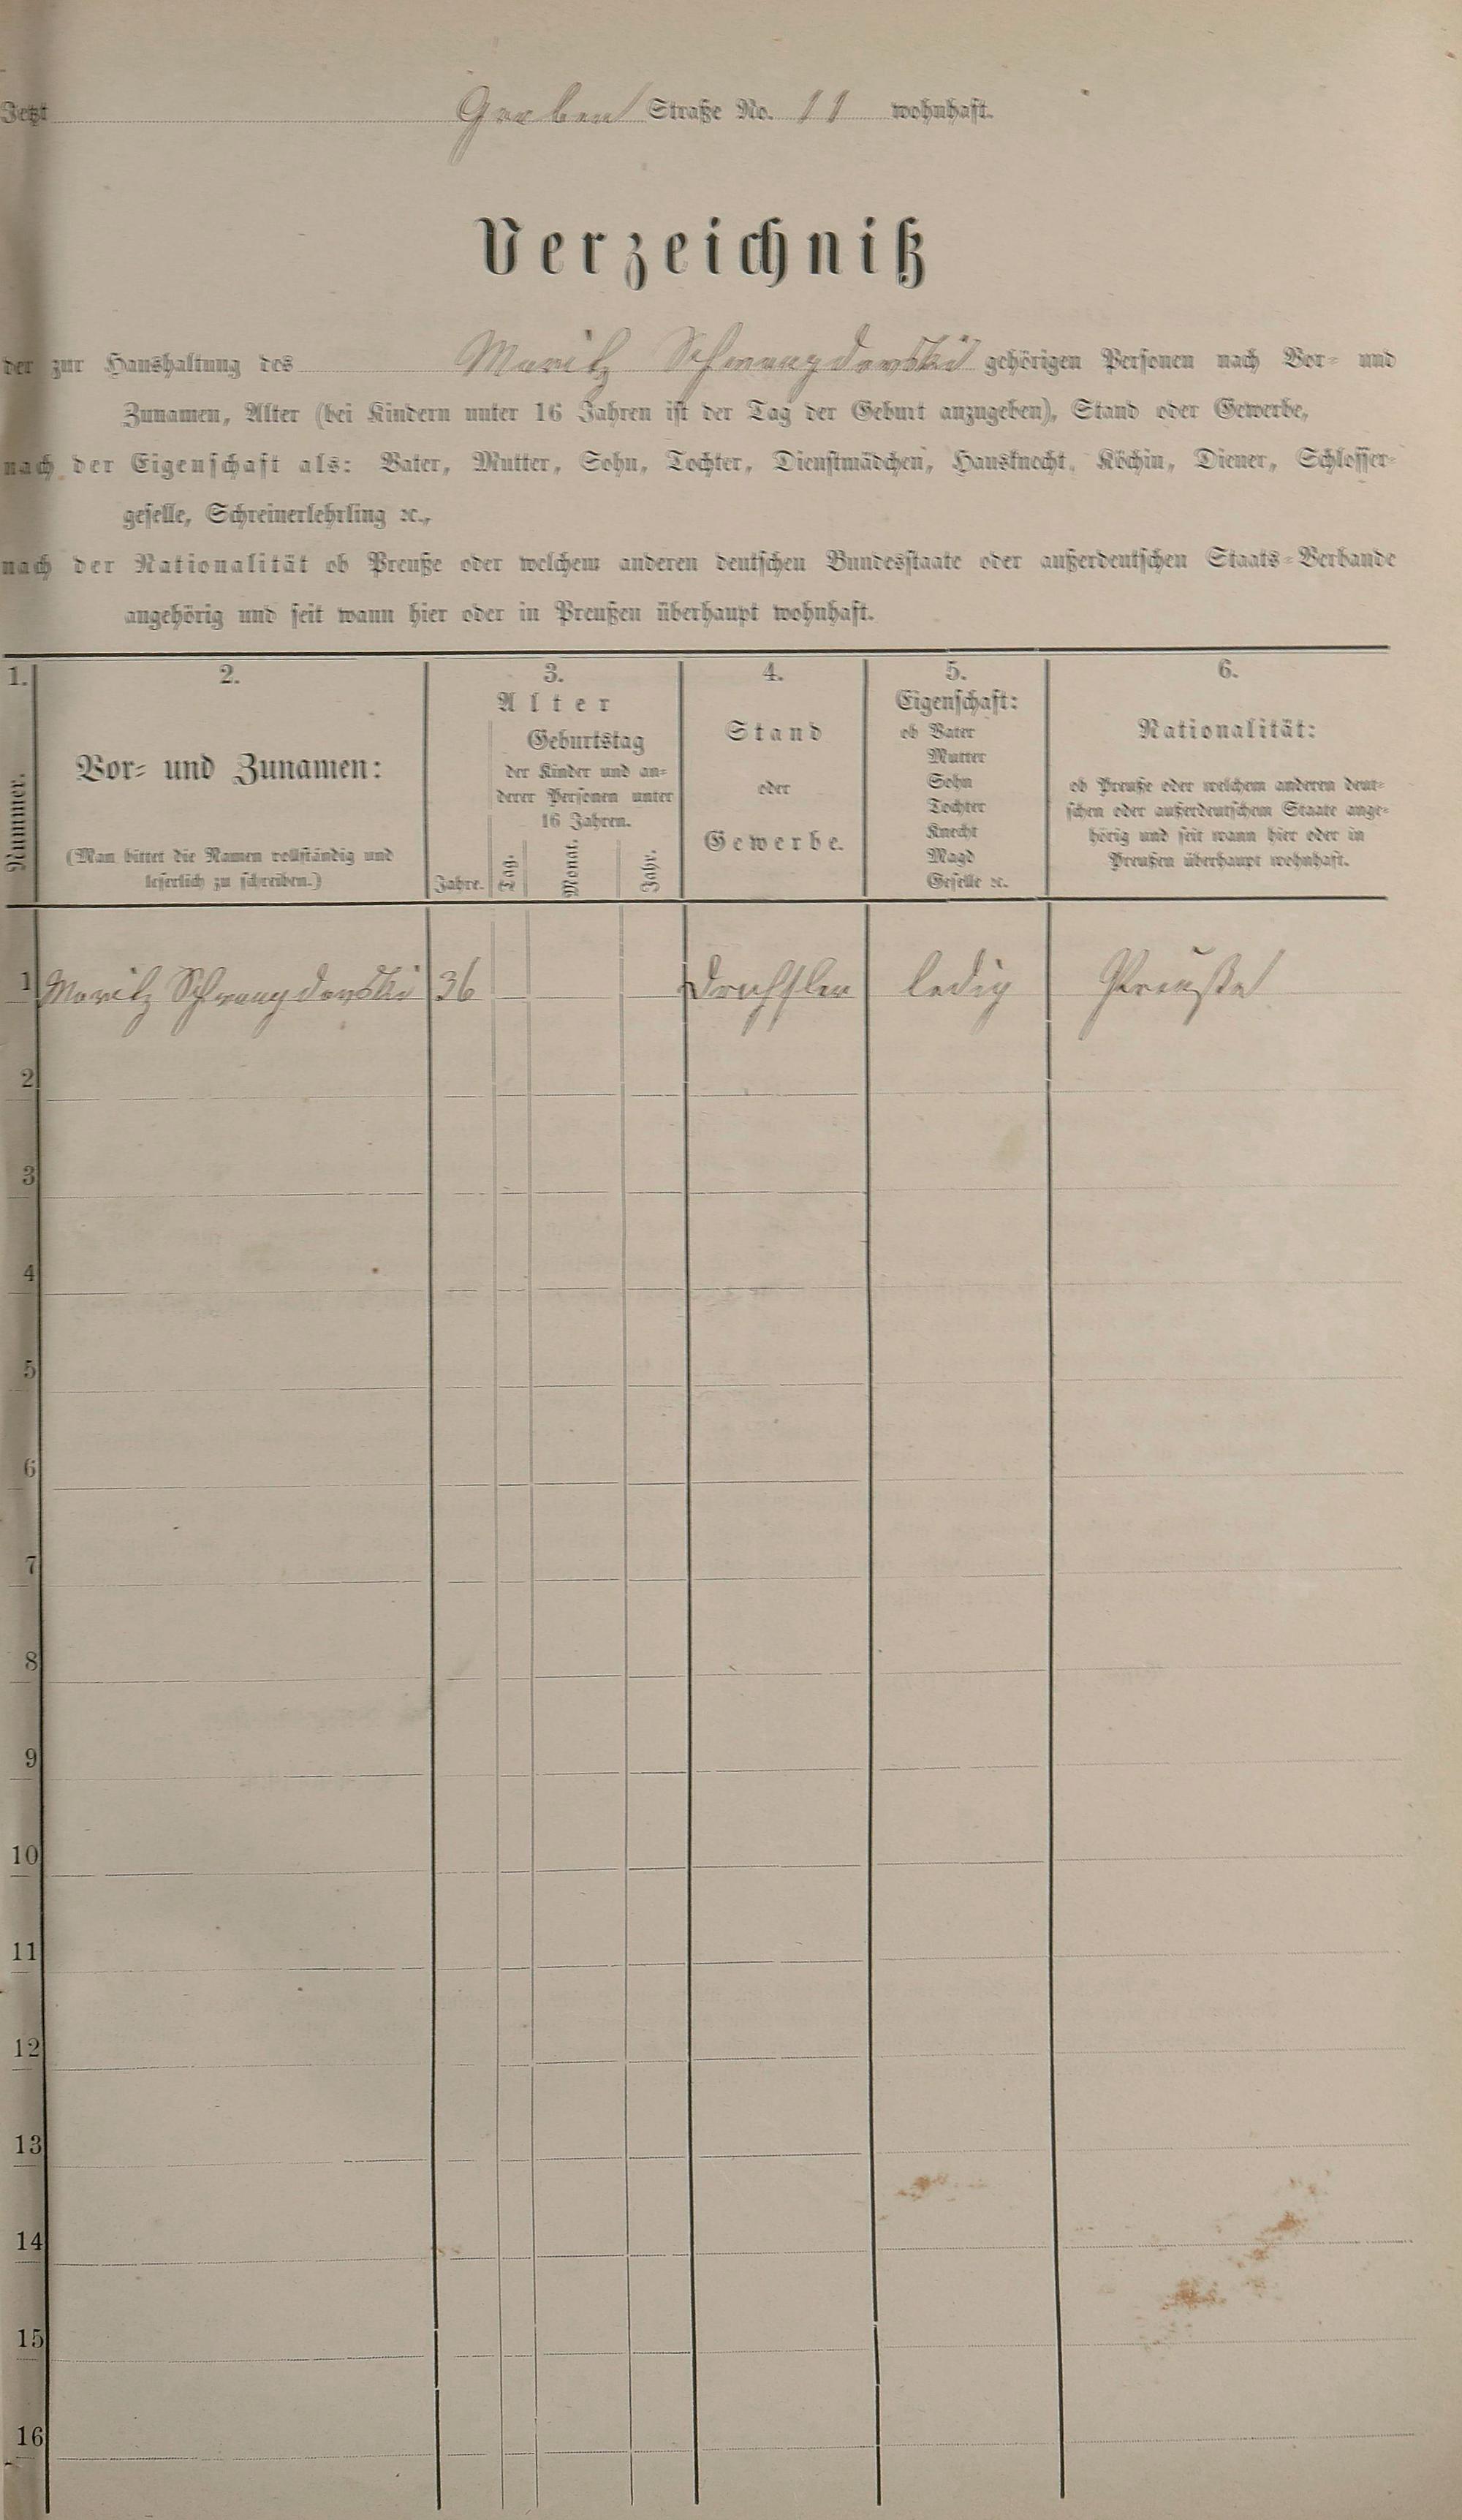 Jetzt Gerben Straße No. 11 wohnhaft.
Verzeichniß
der zur Haushaltung des Moritz gehörigen Personen nach Vor- und
Zunamen, Alter (bei Kindern unter 16 Jahren ist der Tag der Geburt anzugeben), Stand oder Gewerbe,
nach der Eigenschaft als: Vater, Mutter, Sohn, Tochter, Dienstmädchen, Hausknecht, Köchin, Diener, Schlosser-
geselle, Schreinerlehrling ꝛc.,
nach der Nationalität ob Preuße oder welchem anderen deutschen Bundesstaate oder außerdeutschen Staats-Verbande
angehörig und seit wann hier oder in Preußen überhaupt wohnhaft.
1.
Nummer.
2.
Vor- und Zunamen:
(Man bittet die Namen vollständig und
leserlich zu schreiben.)
3.
Alter
Geburtstag
der Kinder und an-
derer Personen unter
16 Jahren.
Jahre. Tag. Monat. Jahr.
4.
Stand
oder
Gewerbe.
5.
Eigenschaft:
ob Vater
Mutter
Sohn
Tochter
Knecht
Magd
Geselle ꝛc.
6.
Nationalität:
ob Preuße oder welchem anderen deut-
schen oder außerdeutschem Staate ange-
hörig und seit wann hier oder in
Preußen überhaupt wohnhaft.
1 Moritz 36 Drechsler ledig Preuße
2
3
4
5
6
7
8
9
10
11
12
13
14
15
16